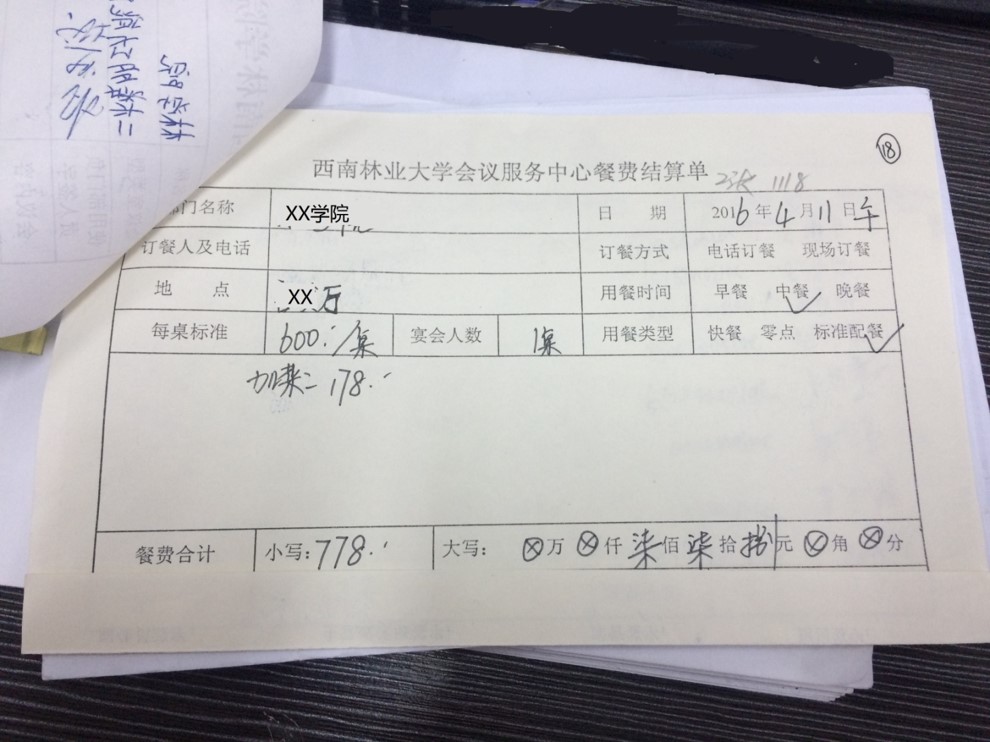 18
西南林业大学会议服务中心餐费结算单
1118
门名称 XX学院 日 期 2016年4月11日午
订餐人及电话 订餐方式 电话订餐 现场订餐
地 点 XX 用餐时间 早餐 中餐 晚餐
每桌标准 600.-/桌 宴会人数 1桌 用餐类型 快餐 零点 标准配餐
加菜二 178.-
餐费合计 小写:778.- 大写: ⊗万 ⊗仟 柒佰 柒拾 捌元 ⊗角 ⊗分